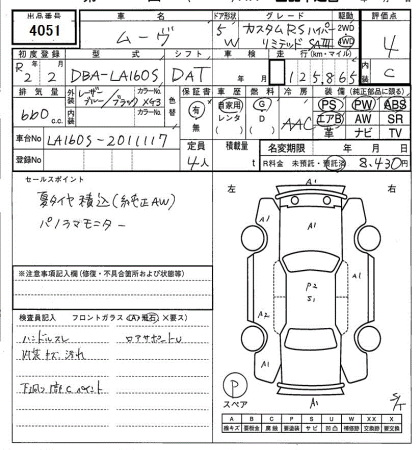 出品番号 4051
車名 ムーヴ
ドア形状 5 W
グレード カスタムRSハイパー リミテッドSAⅢ
駆動 2WD 4WD
評価点 4
初度登録 R2 2
型式 DBA-LA160S
シフト DAT
車検 年 月
走行(km・マイル) 125,865
内装 C
排気量 660 c.c.
外装 レーザーブルー/ブラック
カラーNo. X43
内装 カラーNo.
色替
保証書 有 無
車歴 自家用 レンタ ( )
燃料 G D ( )
冷房 AAC
装備(純正部品に限る)
PS PW ABS
エアB AW SR
革 ナビ TV
車台No LA160S-2011117
登録No
定員 4人
積載量 t
名変期限 年 月 日
R料金 未預託・預託済 8,430円
セールスポイント
夏タイヤ積込(純正AW)
パノラマモニター
※注意事項記入欄(修復・不具合箇所および状態等)
検査員記入 フロントガラス(A)飛石 ×要ス)
ハンドルスレ
内装キズ汚れ
左 右
A1
A1
A1
A1
A2
A1
P2
S1
A1
P
スペア
S/T
A B C P S U W X XX
線キズ 要板金 腐蝕 要塗装 サビ 凹凸 補修跡 交換跡 要交換